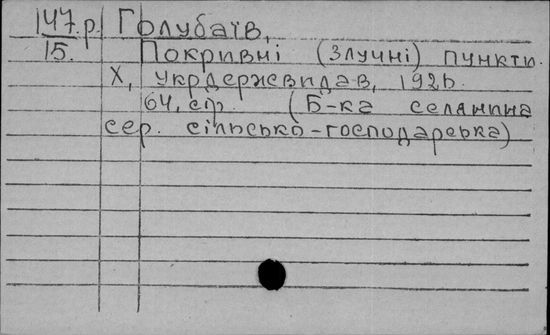 147.р. Голубаїв,
15. Покривні (злучні) пункти.
Х, укрдержвидав, 1926.
64, ст. (Б-ка селянина
сер. сільсько-господарська)